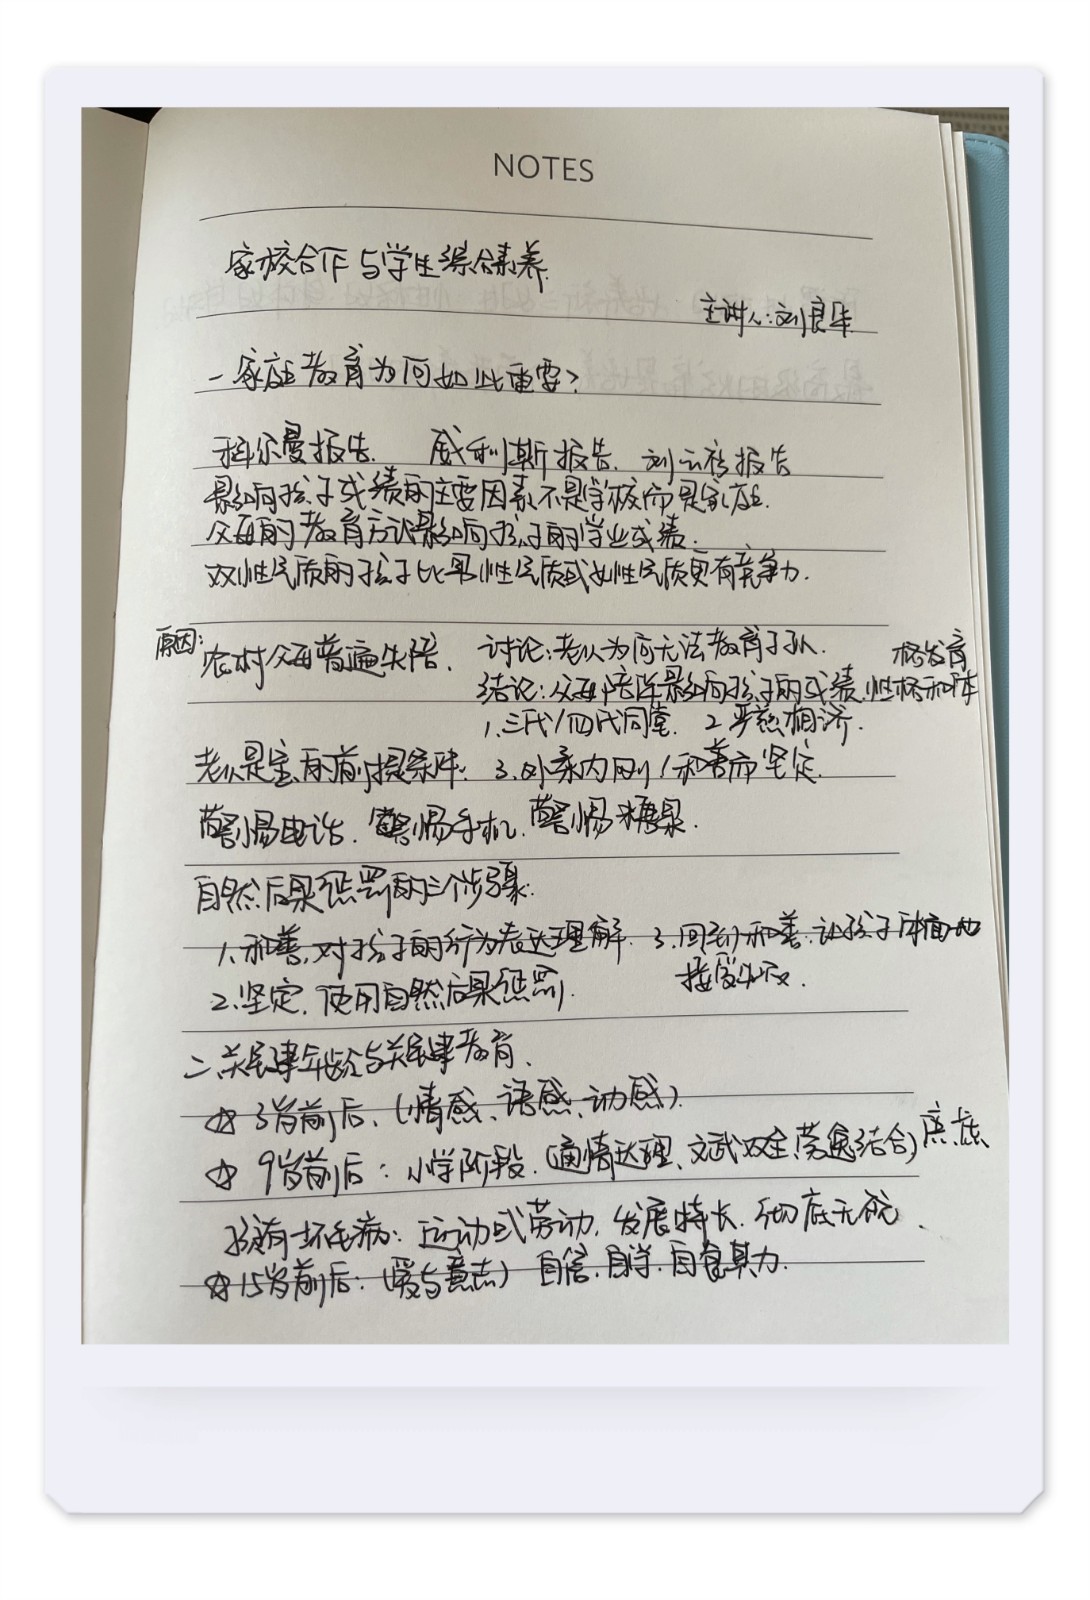 NOTES
家校合作与学生综合素养.
主讲人:刘良华
一 家庭教育为何如此重要?
科尔曼报告. 威利斯报告. 刘云杉报告
影响孩子成绩的主要因素不是学校而是家庭.
父母的教育方式影响孩子的学业成绩.
双性气质的孩子比男性气质或女性气质更有竞争力.
原因: 农村父母普遍失陪. 讨论:老人为何无法教育子孙.
结论:父母陪伴影响孩子的成绩.性格和体
格发育
1.三代/四代同堂. 2.严慈相济.
老人是宝的前提条件: 3.外柔内刚/和善而坚定.
警惕电话. 警惕手机. 警惕糖果.
自然后果惩罚的三个步骤:
1.和善,对孩子的行为表达理解. 3.回到和善:让孩子体面地
接受失败.
2.坚定.使用自然后果惩罚.
二.关键年龄与关键教育.
☆ 3岁前后.(情感、语感、动感).
☆ 9岁前后: 小学阶段.(通情达理、文武双全、劳逸结合)
孩有一坏毛病: 运动或劳动. 发展特长. 彻底无视.
☆15岁前后:(爱与意志) 自信.自学.自食其力.